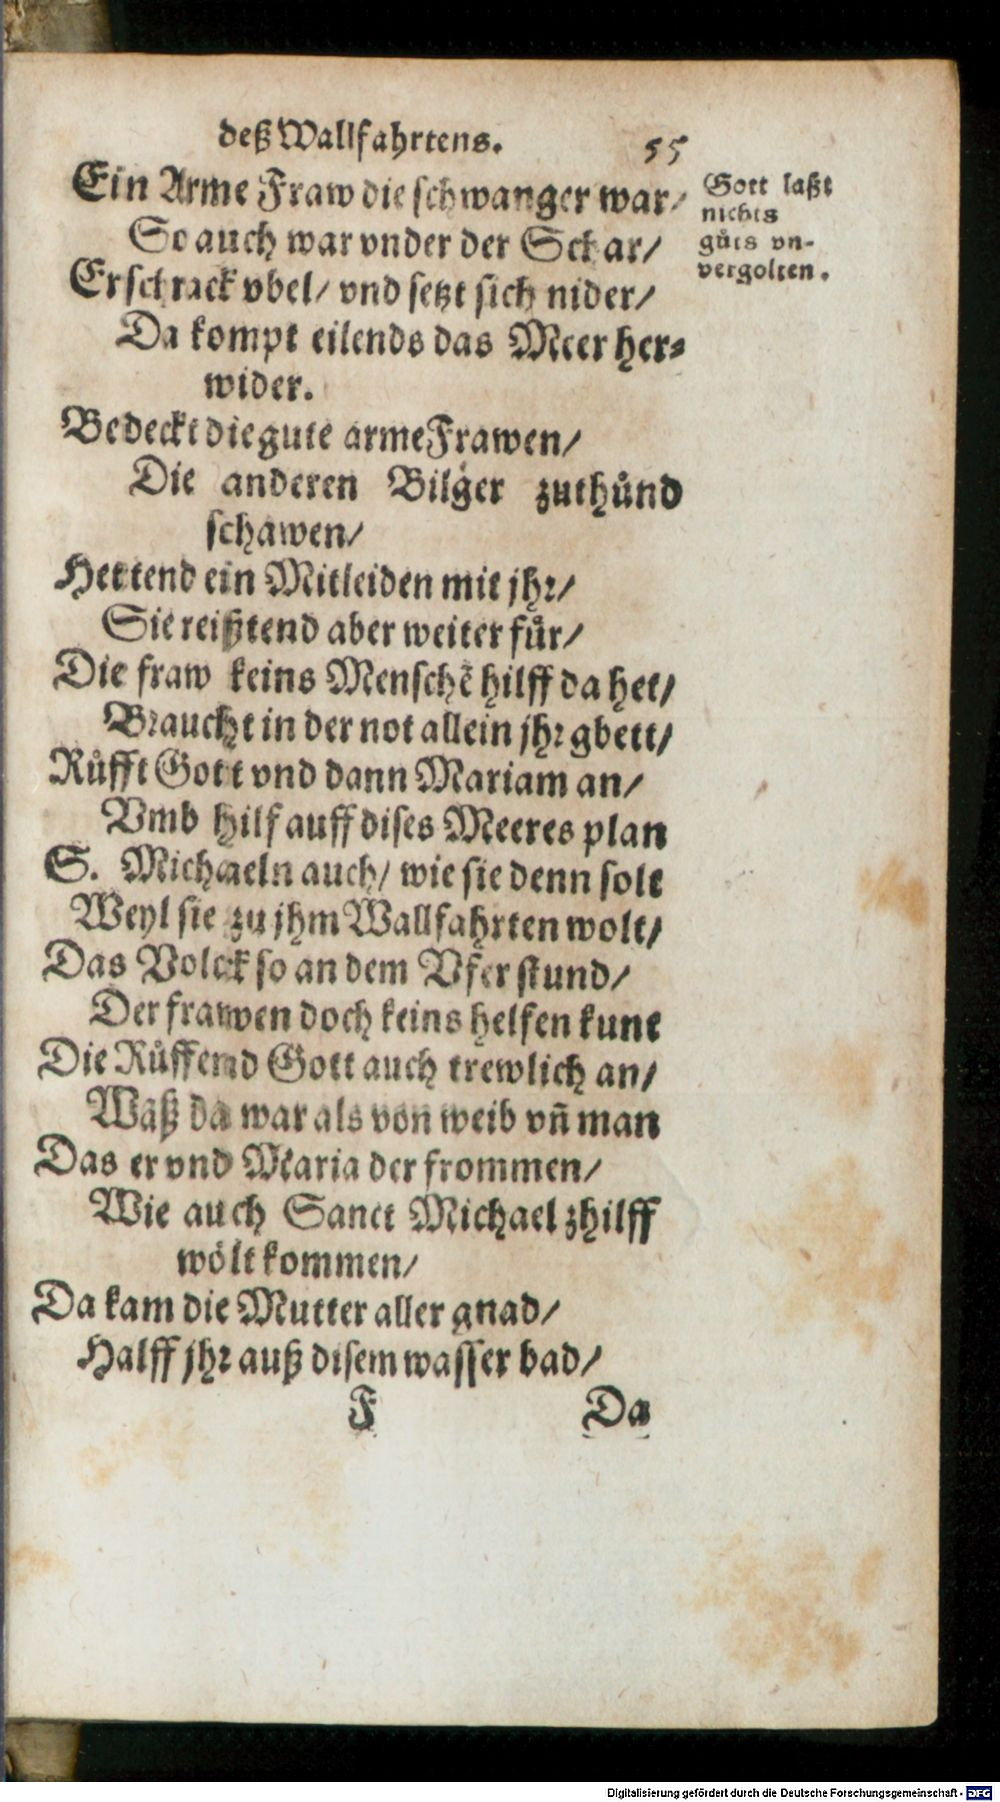 deß Wallfahrtens. 55
Ein Arme Fraw die schwanger war/
So auch war vnder der Schar/
Erschrack vbel/ vnd setzt sich nider/
Da kompt eilends das Meer her⸗
wider.
Bedeckt die gute arme Frawen/
Die anderen Bilger zuthůnd
schawen/
Hettend ein Mitleiden mit jhr/
Sie reißtend aber weiter fůr/
Die fraw keins Menschẽ hilff da het/
Braucht in der not allein jhr gbett/
Růfft Gott vnd dann Mariam an/
Vmb hilf auff dises Meeres plan
S. Michaeln auch/ wie sie denn solt
Weyl sie zu jhm Wallfahrten wolt/
Das Volck so an dem Vfer stund/
Der frawen doch keins helfen kunt
Die Růffend Gott auch trewlich an/
Waß da war als von weib vñ man
Das er vnd Maria der frommen/
Wie auch Sanct Michael zhilff
wölt kommen/
Da kam die Mutter aller gnad/
Halff jhr auß disem wasser bad/
F Da
Gott laßt
nichts
gůts vn-
vergolten.
Digitalisierung gefördert durch die Deutsche Forschungsgemeinschaft - DFG